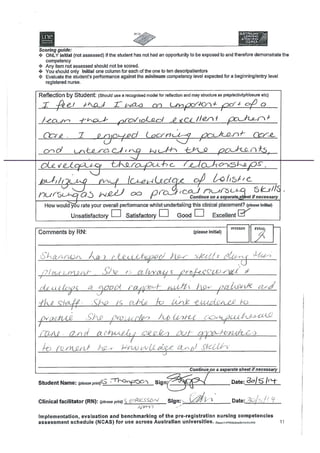 une
Scoring guide:
❖ ONLY initial (not assessed) if the student has not had an opportunity to be exposed to and therefore demonstrate the
competency
❖ Any item not assessed should not be scored.
❖ You should only initial one column for each of the one to ten descriptors/cues
❖ Evaluate the student's performance against the minimum competency level expected for a beginning/entry level
registered nurse.
Reflection by Student: (Should use a recognised model for reflection and may structure as pre/action/in/closure etc)
I feel that I was an important part of a
team that provided excellent patient
care. I enjoyed learning patient care
and interacting with the patients,
developing therapeutic relationships.
utilizing my knowledge of holistic
nursing as well as practical nursing skills.
Continue on a separate sheet if necessary
How would you rate your overall performance whilst undertaking this clinical placement? (please initial)
Unsatisfactory Satisfactory Good Excellent
Comments by RN: (please initial)
Shannon has developed her skills during their
placement She is always professional &
develops a good rapport with her patients and
the staff. She is able to link evidence to
practice She provides holistic comprehensive
care and actively seeks out opportunities
to cement her knowledge and skills
Continue on a separate sheet if necessary
Student Name: (please print) S. Thompson Sign: Date: 30/5/14
Clinical facilitator (RN): (please print) Sign: Date: 30/5/14
Implementation, evaluation and benchmarking of the pre-registration nursing competencies
assessment schedule (NCAS) for use across Australian universities.
11